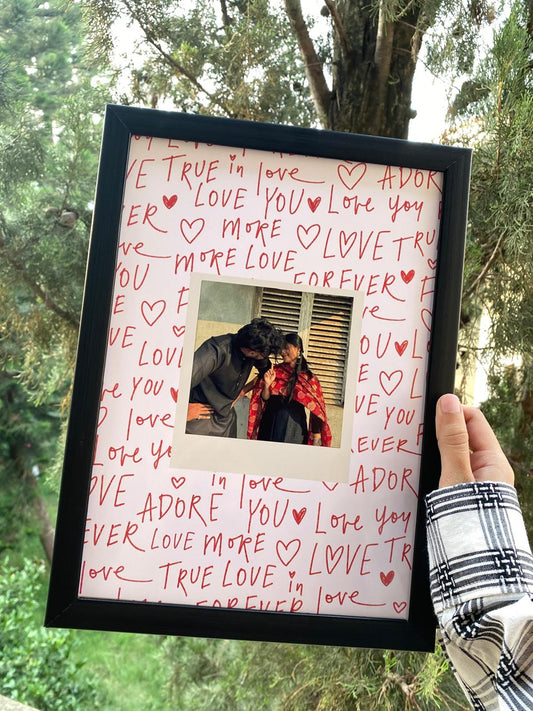 E TRUE in love ADOR
ER LOVE YOU Love you
more LOVE TRU
ove MORE LOVE FOREVER
YOU F
E
OVE LOVE OU L
re YOU VE YOU
love EVER
Love yo ADOR
OVE in love
ADORE YOU Love you
EVER LOVE MORE LOVE TR
love TRUE LOVE in love
FOREVER